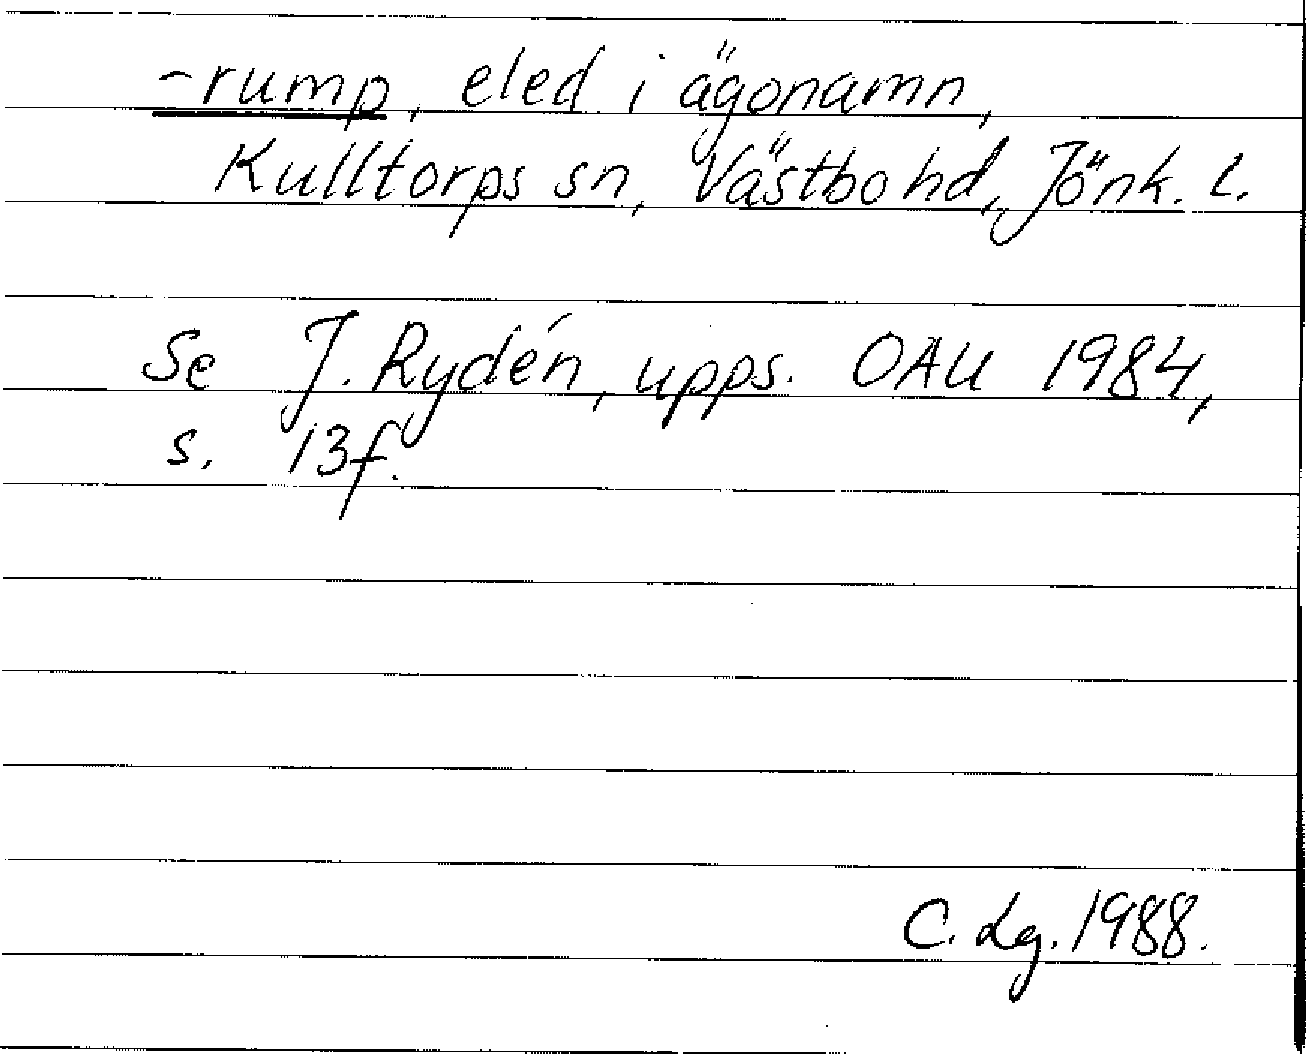 -rump, eled i ägonamn,
Kulltorps sn, Västbo hd, Jönk. l.
Se J. Rydén, upps. OAU 1984,
s. 13f.
C. Lg. 1988.